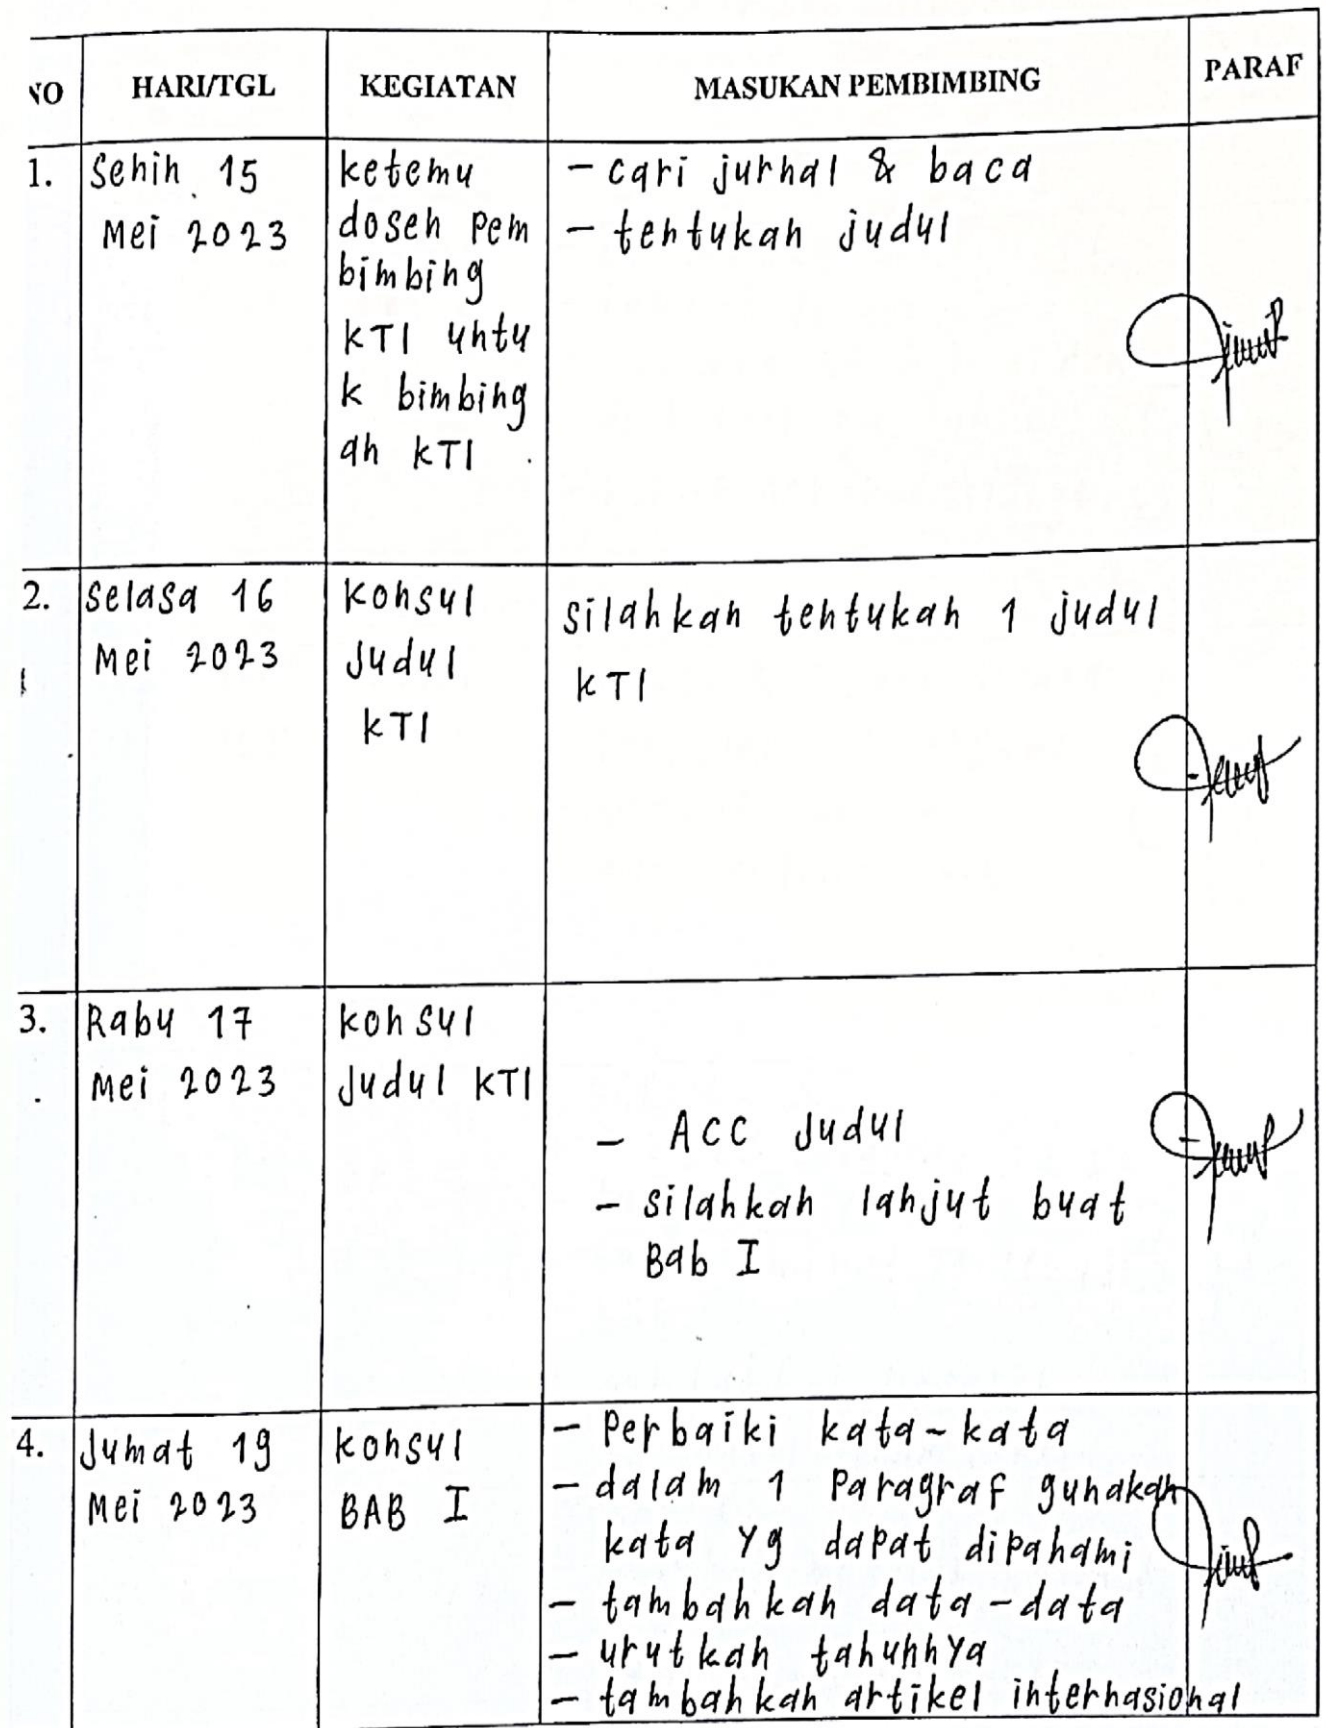 NO HARI/TGL KEGIATAN MASUKAN PEMBIMBING PARAF
1. Senin 15
Mei 2023
ketemu
dosen pem
bimbing
KTI untu
k bimbing
an KTI
- cari jurnal & baca
- tentukan judul
2. Selasa 16
Mei 2023
Konsul
Judul
KTI
silahkan tentukan 1 judul
KTI
3. Rabu 17
Mei 2023
konsul
Judul KTI
- ACC Judul
- silahkan lanjut buat
Bab I
4. Jumat 19
Mei 2023
konsul
BAB I
- Perbaiki kata-kata
- dalam 1 Paragraf gunakan
kata yg dapat dipahami
- tambahkan data-data
- urutkan tahunnya
- tambahkan artikel internasional